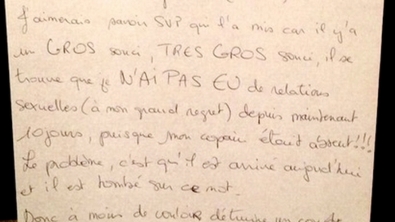 J'aimerais savoir SVP qui l'a mis car il y'a
un GROS souci, TRES GROS souci, il se
trouve que je N'AI PAS EU de relations
sexuelles (à mon grand regret) depuis maintenant
10 jours, puisque mon copain était absent!!!
Le problème, c'est qu'il est arrivé aujourd'hui
et il est tombé sur ce mot.
Donc à moins de vouloir détruire un couple